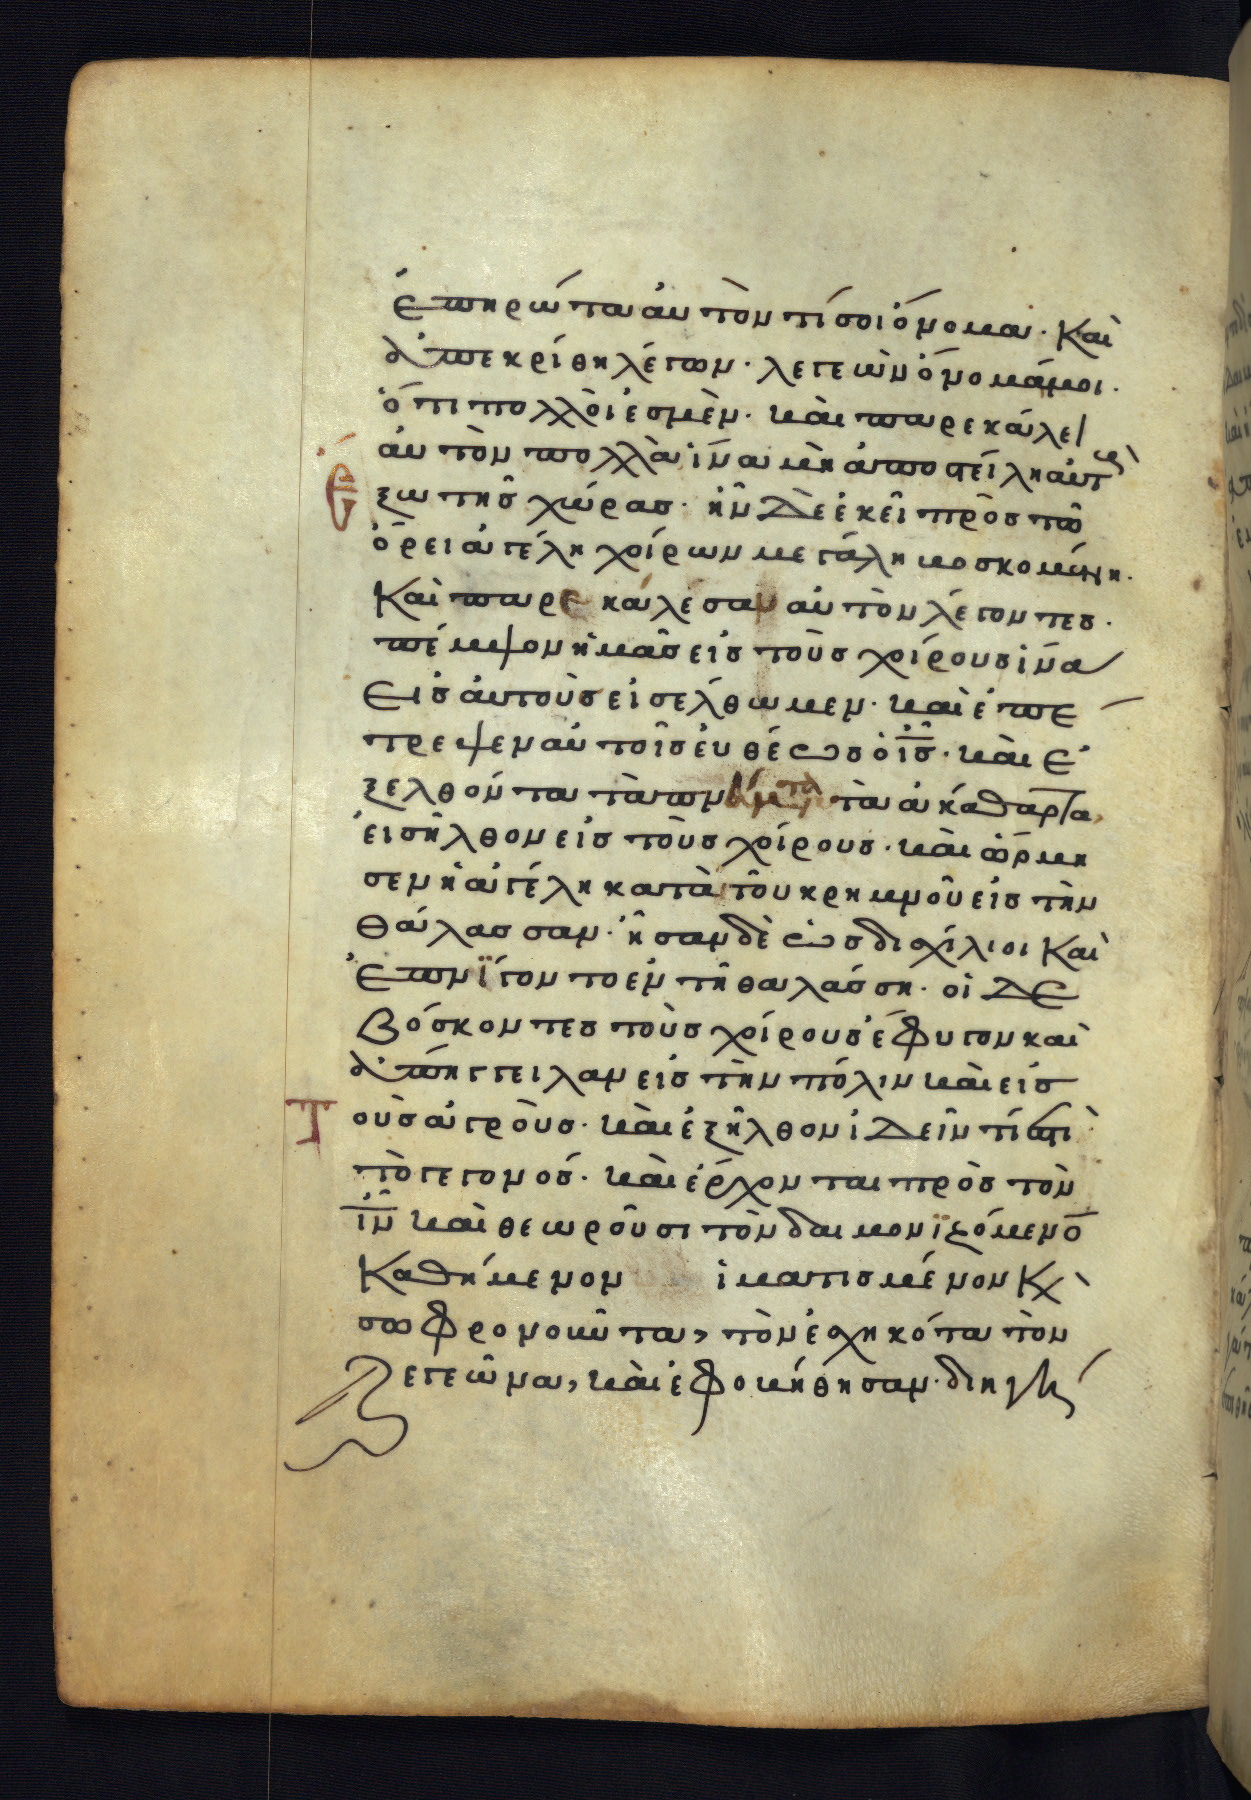 ἐπηρώτα αὐτὸν τί σοι ὄνομα· Καὶ
ἀπεκρίθη λέγων· λεγεὼν ὄνομά μοι·
ὅτι πολλοὶ ἐσμὲν· καὶ παρεκάλει
αὐτὸν πολλὰ ἵνα μὴ ἀποστείλη αὐτ
Ἔξω τῆς χώρας· ἦν δὲ ἐκεῖ πρὸς τῶ
ὄρει ἀγέλη χοίρων μεγάλη βοσκομένη·
Καὶ παρεκάλεσαν αὐτὸν λέγοντες·
πέμψον ἡμᾶς εἰς τοὺς χοίρους ἵνα
Εἰς αὐτοὺς εἰσέλθωμεν· καὶ ἐπέ
τρεψεν αὐτοῖς εὐθέως ὁ ις· καὶ ἐ
ξελθόντα τὰ πνατα τὰ ἀκάθαρτα,
εἰσῆλθον εἰς τοὺς χοίρους· καὶ ὥρμη
σεν ἡ ἀγέλη κατὰ τοῦ κρημνοῦ εἰς τὴν
Θάλασσαν· ἦσαν δὲ ὡς δισχίλιοι Καὶ
ἐπνίγοντο ἐν τῆ θαλάσση· οἱ δὲ
βόσκοντες τοὺς χοίρους ἔφυγον καὶ
ἀπήγγειλαν εἰς τὴν πόλιν καὶ εἰς
Τοὺς ἀγροὺς· καὶ ἐξῆλθον ἰδεῖν τί ἐστι
τὸ γεγονός· καὶ ἔρχονται πρὸς τὸν
ιν καὶ θεωροῦσι τὸν δαιμονϊζόμενο
Καθήμενον ἱματισμένον Κ
σωφρονοῦντα, τὸν ἐσχηκότα τὸν
λεγεῶνα, καὶ ἐφοβήθησαν· διηγή